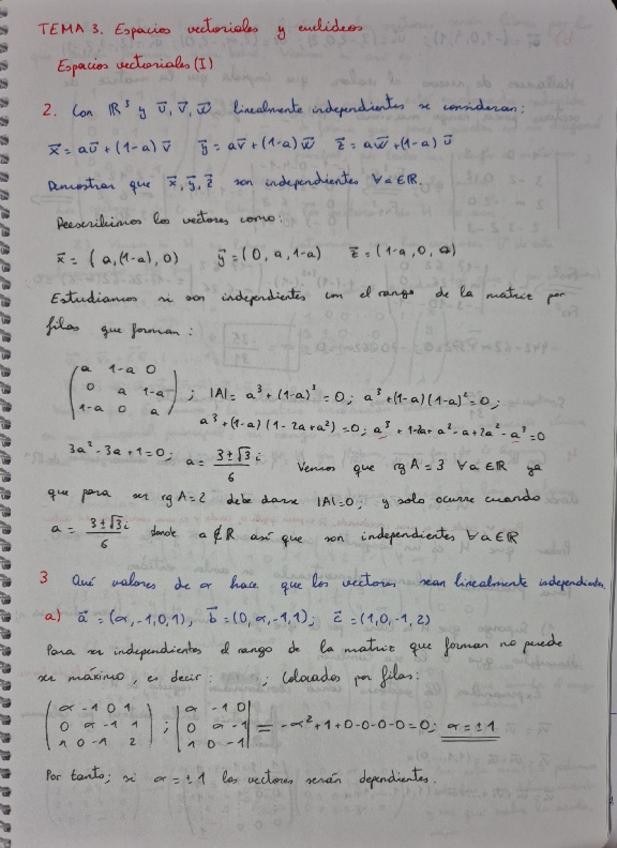 TEMA 3. Espacios vectoriales y euclídeos
Espacios vectoriales (I)
2. Con ℝ³ y u⃗, v⃗, w⃗ linealmente independientes se consideran:
x⃗ = au⃗ + (1-a) v⃗ y⃗ = av⃗ + (1-a) w⃗ z⃗ = aw⃗ + (1-a) u⃗
Demostrar que x⃗, y⃗, z⃗ son independientes ∀a∈ℝ.
Reescribimos los vectores como:
x⃗ = (a, (1-a), 0) y⃗ = (0, a, 1-a) z⃗ = (1-a, 0, a)
Estudiamos si son independientes con el rango de la matriz por
filas que forman:
a 1-a 0
0 a 1-a
1-a 0 a
; |A| = a³ + (1-a)³ = 0; a³ + (1-a)(1-a)² = 0;
a³ + (1-a)(1-2a+a²) = 0; a³ + 1-2a+a²-a+2a²-a³ = 0
3a² - 3a + 1 = 0; a = (3 ± √3 i)/6 Vemos que rg A = 3 ∀a∈ℝ ya
que para ser rg A = 2 debe darse |A| = 0; y solo ocurre cuando
a = (3 ± √3 i)/6 donde a ∉ ℝ así que son independientes ∀a∈ℝ
3 Qué valores de α hace que los vectores sean linealmente independientes.
a) a⃗ = (α, -1, 0, 1), b⃗ = (0, α, -1, 1); c⃗ = (1, 0, -1, 2)
Para ser independientes el rango de la matriz que forman no puede
ser máximo, es decir: ; colocados por filas:
α -1 0 1
0 α -1 1
1 0 -1 2
;
α -1 0
0 α -1
1 0 -1
= -α² + 1 + 0 - 0 - 0 - 0 = 0; α = ±1
Por tanto; si α = ±1 los vectores serán dependientes.